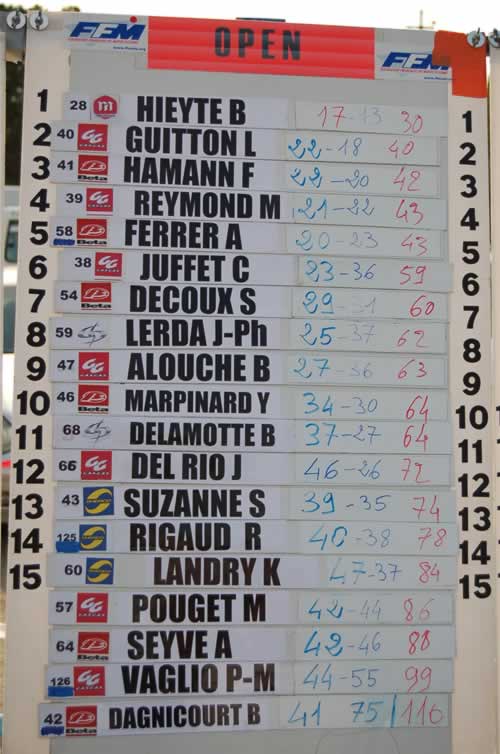 FFM OPEN FFM
1 28 m HIEYTE B 17-13 30 1
2 40 GG GUITTON L 22-18 40 2
3 41 Beta HAMANN F 22-20 42 3
4 39 GG REYMOND M 21-22 43 4
5 58 Beta FERRER A 20-23 43 5
6 38 GG JUFFET C 23-36 59 6
7 54 Beta DECOUX S 29-31 60 7
8 59 LERDA J-Ph 25-37 62 8
9 47 GG ALOUCHE B 27-36 63 9
10 46 Beta MARPINARD Y 34-30 64 10
11 68 DELAMOTTE B 37-27 64 11
12 66 GG DEL RIO J 46-26 72 12
13 43 SUZANNE S 39-35 74 13
14 125 RIGAUD R 40-38 78 14
15 60 LANDRY K 47-37 84 15
57 GG POUGET M 42-44 86
64 Beta SEYVE A 42-46 88
126 GG VAGLIO P-M 44-55 99
42 Beta DAGNICOURT B 41 75/116